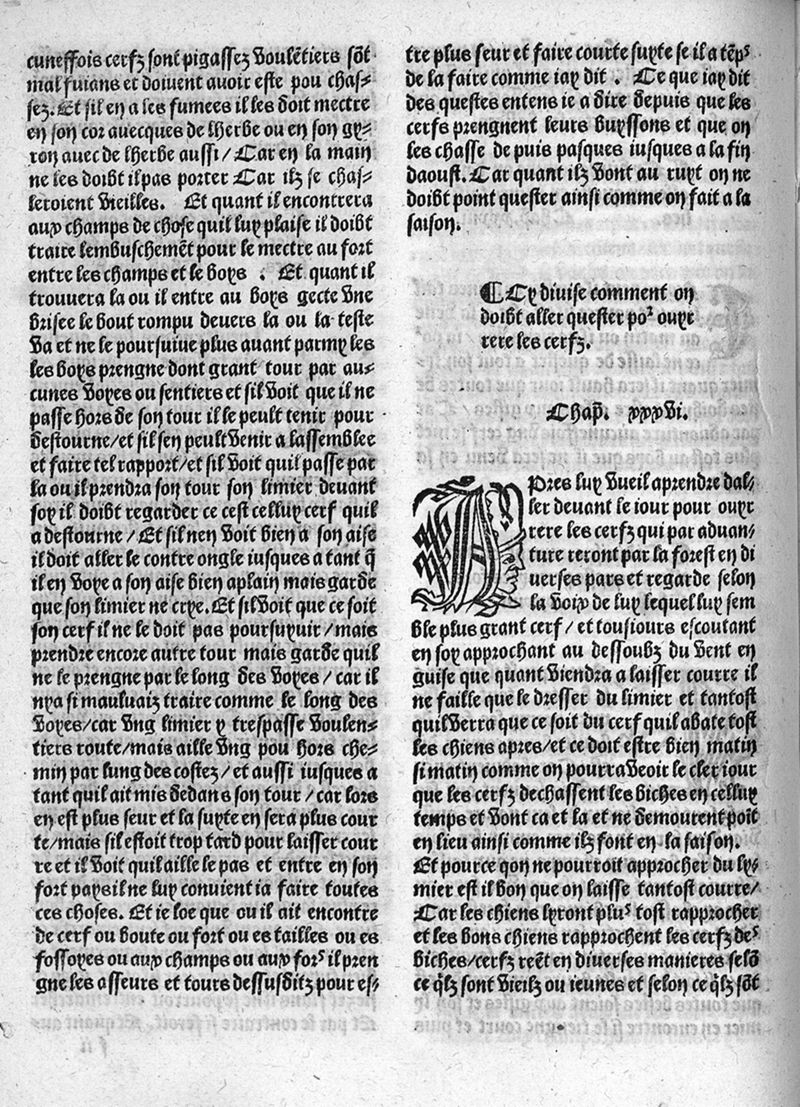 cuneffois cerfz sont pigassez voulẽtiers sõt
mal fuians et doivent avoir este pou chas/
sez. Et sil en a les fumees il les doit mectre
en son cor avecques de lherbe ou en son gy/
ron avec de lherbe aussi/ Car en la main
ne les doibt il pas porter Car ilz se chas/
leroient vieilles. Et quant il encontrera
aux champs de chose quil luy plaise il doibt
traire lembuschemẽt pour le mectre au fort
entre les champs et le boys . Et quant il
trouvera la ou il entre au boys gecte vne
brisee le bout rompu devers la ou la teste
va et ne le poursuive plus avant parmy les
les boys prengne dont grant tour par au/
cunes voyes ou sentiers et sil voit que il ne
passe hors de son tour il le peult tenir pour
destourne/et sil sen peult venir a lassemblee
et faire tel rapport/et sil voit quil passe par
la ou il prendra son tour son limier devant
soy il doibt regarder ce cest celluy cerf quil
a destourne/Et sil nen voit bien a son aise
il doit aller le contre ongle iusques a tant q̃
il en voye a son aise bien aplain mais garde
que son limier ne crye. Et sil voit que ce soit
son cerf il ne le doit pas poursuyuir/mais
prendre encore autre tour mais garde quil
ne le prengne par le long des voyes/ car il
nya si mauluaiz traire comme le long des
voyes/car vng limier y trespasse voulen/
tiers route/mais aille vng pou hors che/
min par lung des costez/et aussi iusques a
tant quil ait mis dedans son tour/car lors
en est plus seur et la suyte en sera plus cour
te/mais sil estoit trop tard pour laisser cour
re et il voit quil aille le pas et entre en son
fort pays il ne luy convient ia faire toutes
ces choses. Et ie loe que ou il ait encontre
de cerf ou boute ou fort ou es tailles ou es
fossoyes ou aux champs ou aux forˢ il pren
gne les asseurs et tours dessusditz pour es/
tre plus seur et faire courte suyte se il a tẽpˢ
de la faire comme iay dit . Ce que iay dit
des questes entens ie a dire depuis que les
cerfs prengnent leurs buyssons et que on
les chasse de puis pasques iusques a la fin
daoust. Car quant ilz vont au ruyt on ne
doibt point quester ainsi comme on fait a la
saison.
¶ Cy divise comment on
doibt aller quester poꝛ² ouyr
rere les cerfz.
Chap̃. xxxvi.
Apres luy vueil aprendre dal/
ler devant le iour pour ouyr
rere les cerfz qui par aduan/
ture reront par la forest en di
verses pars et regarde selon
la voix de luy lequel luy sem
ble plus grant cerf/ et tousiours escoutant
en soy approchant au dessoubz du vent en
guise que quant viendra a laisser courre il
ne faille que le dresser du limier et tantost
quil verra que ce soit du cerf quil abate tost
les chiens apres/et ce doit estre bien matin
si matin comme on pourra veoir le cler iour
que les cerfz dechassent les biches en celluy
temps et vont ca et la et ne demourent poĩt
en lieu ainsi comme ilz font en la saison.
Et pource qon ne pourroit approcher du ly/
mier est il bon que on laisse tantost courre/
Car les chiens lyront pluˢ tost rapprocher
et les bons chiens rapprochent les cerfz deˢ
biches/cerfz reẽt en diverses manieres selõ
ce q̃lz sont vieilz ou ieunes et selon ce q̃lz sõt